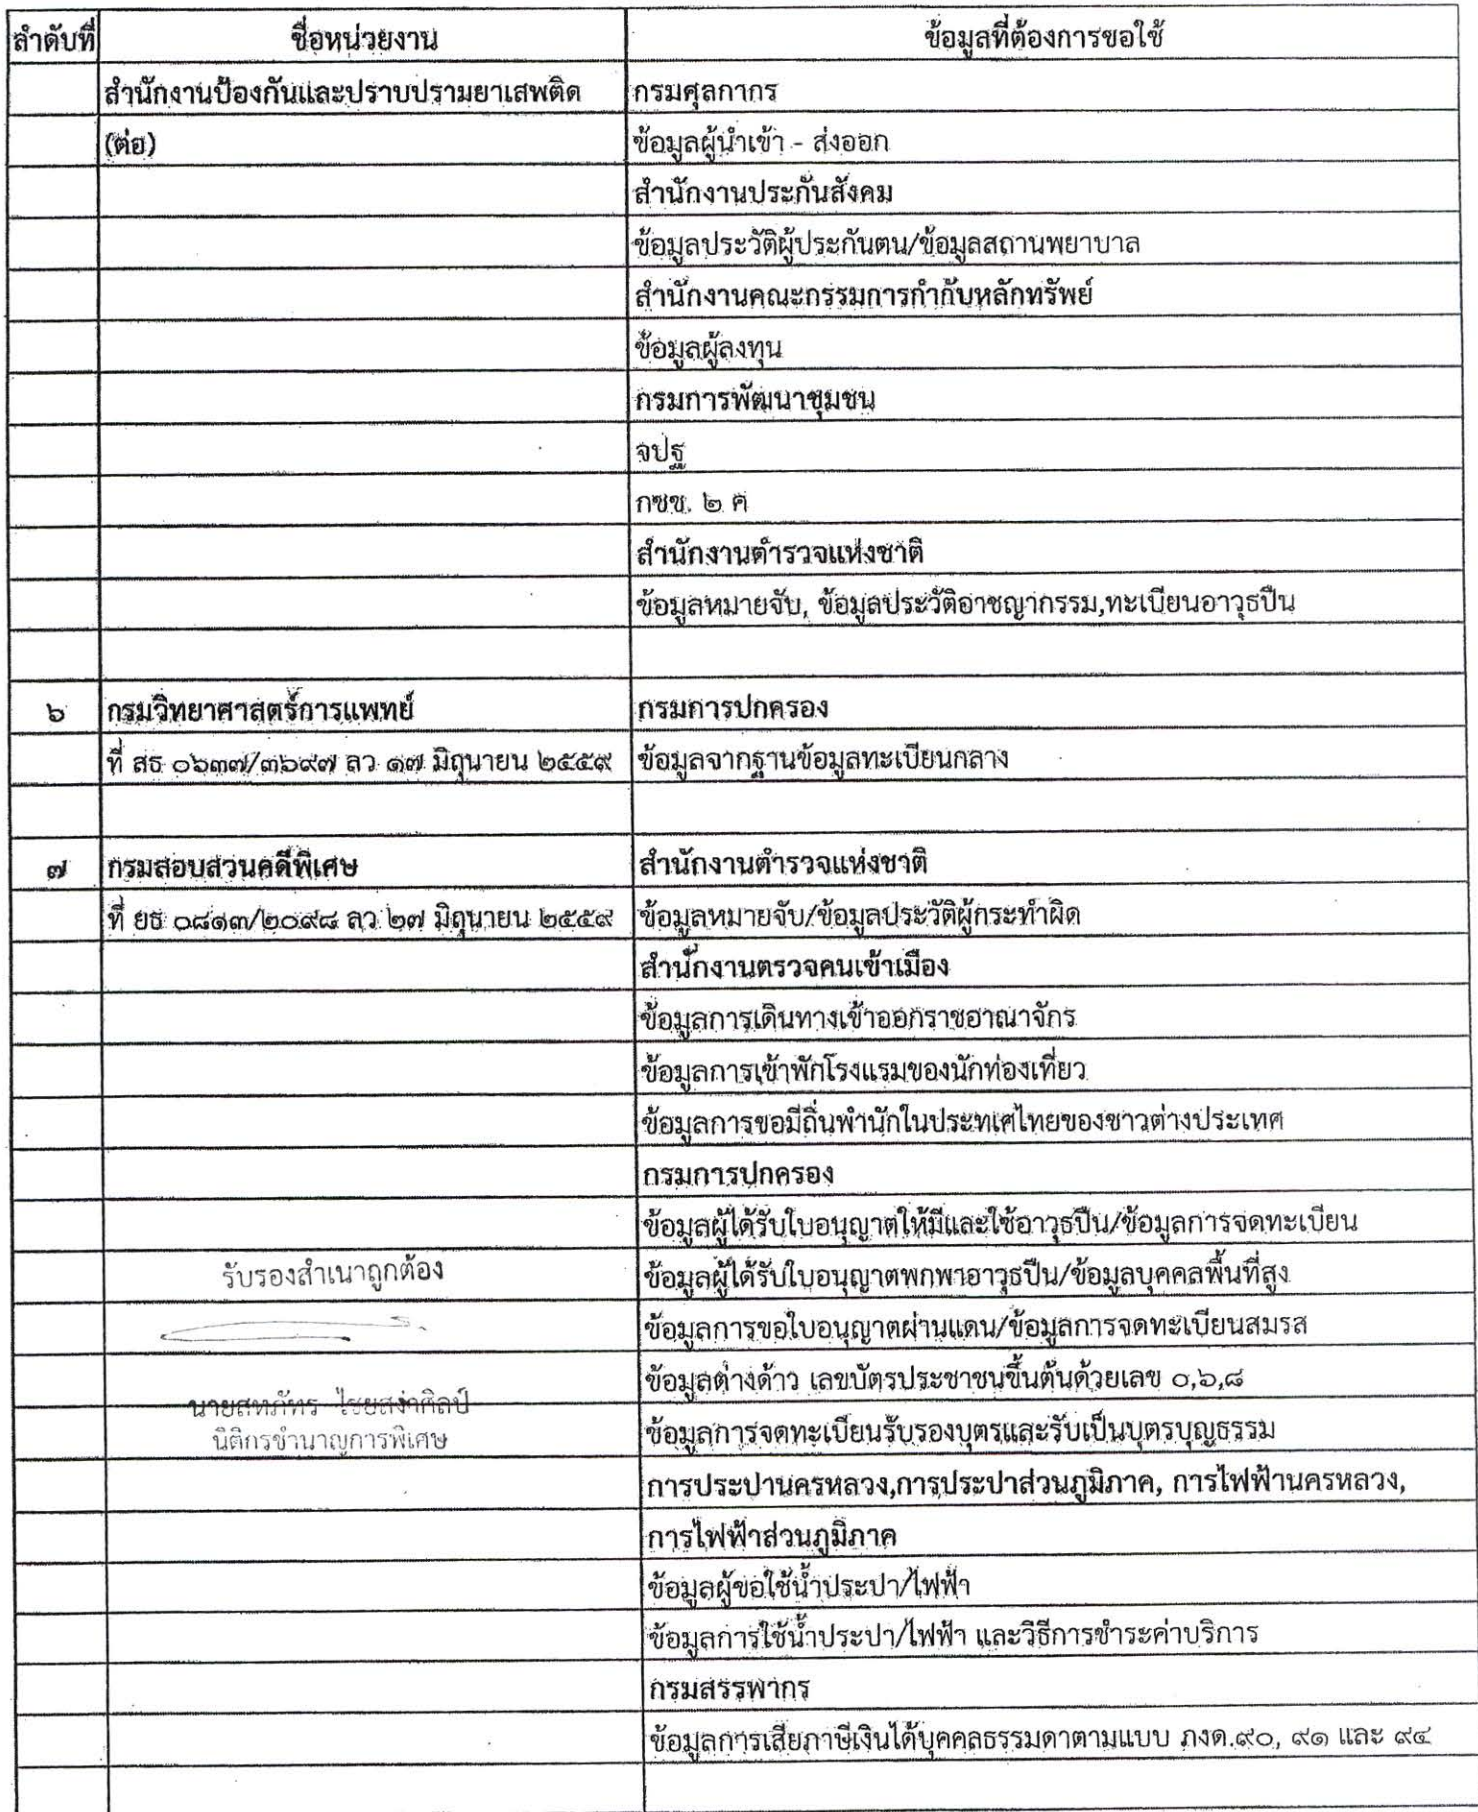 ลำดับที่ ชื่อหน่วยงาน ข้อมูลที่ต้องการขอใช้
สำนักงานป้องกันและปราบปรามยาเสพติด กรมศุลกากร
(ต่อ) ข้อมูลผู้นำเข้า - ส่งออก
สำนักงานประกันสังคม
ข้อมูลประวัติผู้ประกันตน/ข้อมูลสถานพยาบาล
สำนักงานคณะกรรมการกำกับหลักทรัพย์
ข้อมูลผู้ลงทุน
กรมการพัฒนาชุมชน
จปฐ
กชช. ๒ ค
สำนักงานตำรวจแห่งชาติ
ข้อมูลหมายจับ, ข้อมูลประวัติอาชญากรรม,ทะเบียนอาวุธปืน
๖ กรมวิทยาศาสตร์การแพทย์ กรมการปกครอง
ที่ สธ ๐๖๓๗/๓๖๙๗ ลว ๑๗ มิถุนายน ๒๕๕๙ ข้อมูลจากฐานข้อมูลทะเบียนกลาง
๗ กรมสอบสวนคดีพิเศษ สำนักงานตำรวจแห่งชาติ
ที่ ยธ ๐๘๑๓/๒๐๙๘ ลว ๒๗ มิถุนายน ๒๕๕๙ ข้อมูลหมายจับ/ข้อมูลประวัติผู้กระทำผิด
สำนักงานตรวจคนเข้าเมือง
ข้อมูลการเดินทางเข้าออกราชอาณาจักร
ข้อมูลการเข้าพักโรงแรมของนักท่องเที่ยว
ข้อมูลการขอมีถิ่นพำนักในประเทศไทยของชาวต่างประเทศ
กรมการปกครอง
ข้อมูลผู้ได้รับใบอนุญาตให้มีและใช้อาวุธปืน/ข้อมูลการจดทะเบียน
รับรองสำเนาถูกต้อง ข้อมูลผู้ได้รับใบอนุญาตพกพาอาวุธปืน/ข้อมูลบุคคลพื้นที่สูง
ข้อมูลการขอใบอนุญาตผ่านแดน/ข้อมูลการจดทะเบียนสมรส
ข้อมูลต่างด้าว เลขบัตรประชาชนขึ้นต้นด้วยเลข ๐,๖,๘
นายสหภัทร ไชยสง่าศิลป์
นิติกรชำนาญการพิเศษ ข้อมูลการจดทะเบียนรับรองบุตรและรับเป็นบุตรบุญธรรม
การประปานครหลวง,การประปาส่วนภูมิภาค, การไฟฟ้านครหลวง,
การไฟฟ้าส่วนภูมิภาค
ข้อมูลผู้ขอใช้น้ำประปา/ไฟฟ้า
ข้อมูลการใช้น้ำประปา/ไฟฟ้า และวิธีการชำระค่าบริการ
กรมสรรพากร
ข้อมูลการเสียภาษีเงินได้บุคคลธรรมดาตามแบบ ภงด.๙๐, ๙๑ และ ๙๔